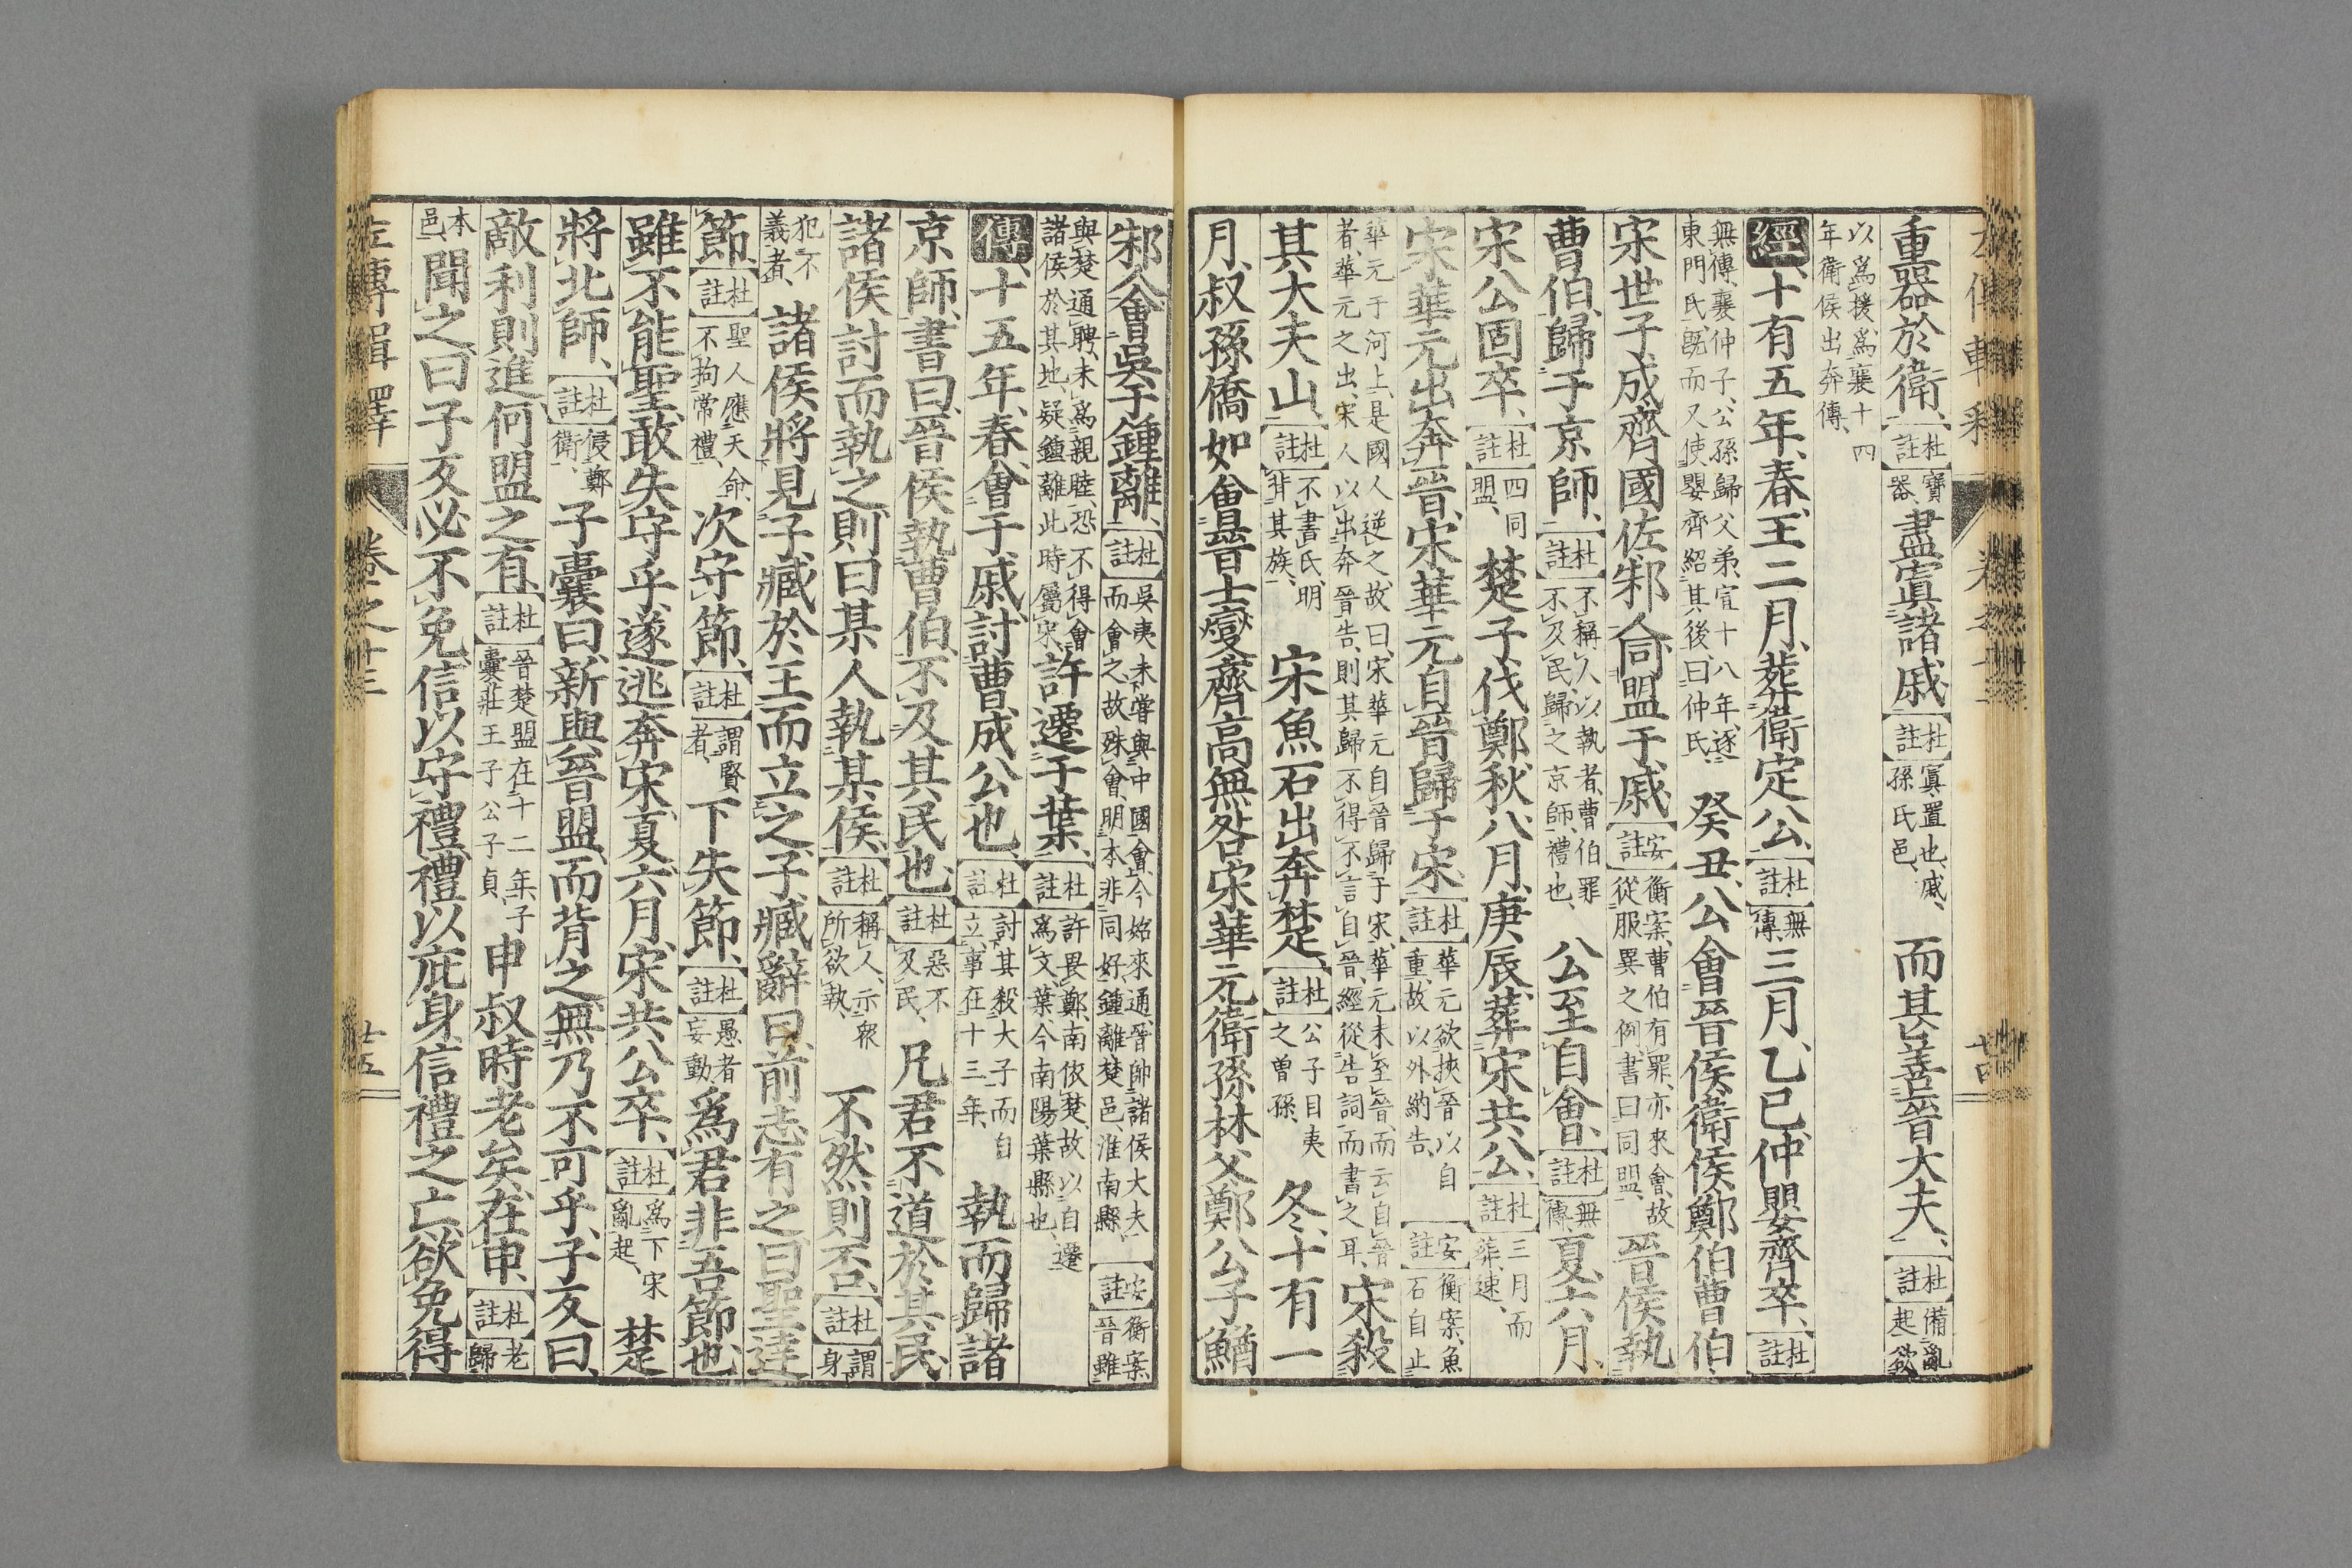 重器於衛、杜註寶器、盡寘諸戚、杜註寘、置也、戚、孫氏邑、而甚善晉大夫、杜註備亂起、欲
以爲援、爲襄十四年衛侯出奔傳、
經、十有五年、春、王二月、葬衛定公、杜註無傳、三月、乙巳、仲嬰齊卒、杜註
無傳、襄仲子、公孫歸父弟、宣十八年、逐東門氏、既而又使嬰齊紹其後、曰仲氏、癸丑、公會晉侯、衛侯、鄭伯、曹伯、
宋世子成、齊國佐、邾人同盟于戚、安註衡案、曹伯有罪、亦來會、故從服異之例、書曰同盟、晉侯執
曹伯、歸于京師、杜註不稱人以執者、曹伯罪不及民、歸之京師、禮也、公至自會、杜註無傳、夏六月、
宋公固卒、杜註四同盟、楚子伐鄭、秋八月、庚辰、葬宋共公、杜註三月而葬、速、
宋華元出奔晉、宋華元自晉歸于宋、杜註華元欲挾晉以自重、故以外納告、安註衡案、魚石自止
華元于河上、是國人逆之、故曰宋華元自晉歸于宋、華元未至晉、而云自晉者、華元之出、宋人以出奔晉告、則其歸不得不言自晉、經從告詞而書之耳、宋殺
其大夫山、杜註不書氏、明非其族、宋魚石出奔楚、杜註公子目夷之曾孫、冬、十有一
月、叔孫僑如會晉士燮、齊高無咎、宋華元、衛孫林父、鄭公子鰌、
邾人會吳于鍾離、杜註吳夷未嘗與中國會、今始來通、晉帥諸侯大夫而會之、故殊會、明本非同好、鍾離楚邑、淮南縣、安註衡案、晉雖
與楚通聘、未爲親睦、恐不得會諸侯於其地、疑鍾離此時屬宋、許遷于葉、杜註許畏鄭、南依楚、故以自遷爲文、葉、今南陽葉縣也、
傳、十五年、春、會于戚、討曹成公也、杜註討其殺大子而自立、事在十三年、執而歸諸
京師、書曰、晉侯執曹伯、不及其民也、杜註惡不及民、凡君不道於其民、
諸侯討而執之、則曰某人執某侯、杜註稱人、示衆所欲執、不然則否、杜註謂身
犯不義者、諸侯將見子臧於王而立之、子臧辭曰、前志有之曰、聖達
節、杜註聖人應天命、不拘常禮、次守節、杜註謂賢者、下失節、杜註愚者妄動、爲君非吾節也、
雖不能聖、敢失守乎、遂逃奔宋、夏六月、宋共公卒、杜註爲下宋亂起、楚
將北師、杜註侵鄭衛、子囊曰、新與晉盟、而背之、無乃不可乎、子反曰、
敵利則進、何盟之有、杜註晉楚盟在十二年、子囊、莊王子公子貞、申叔時老矣、在申、杜註老歸
本邑、聞之曰、子反必不免、信以守禮、禮以庇身、信禮之亡、欲免得
左傳輯釋 卷之十三 廿五